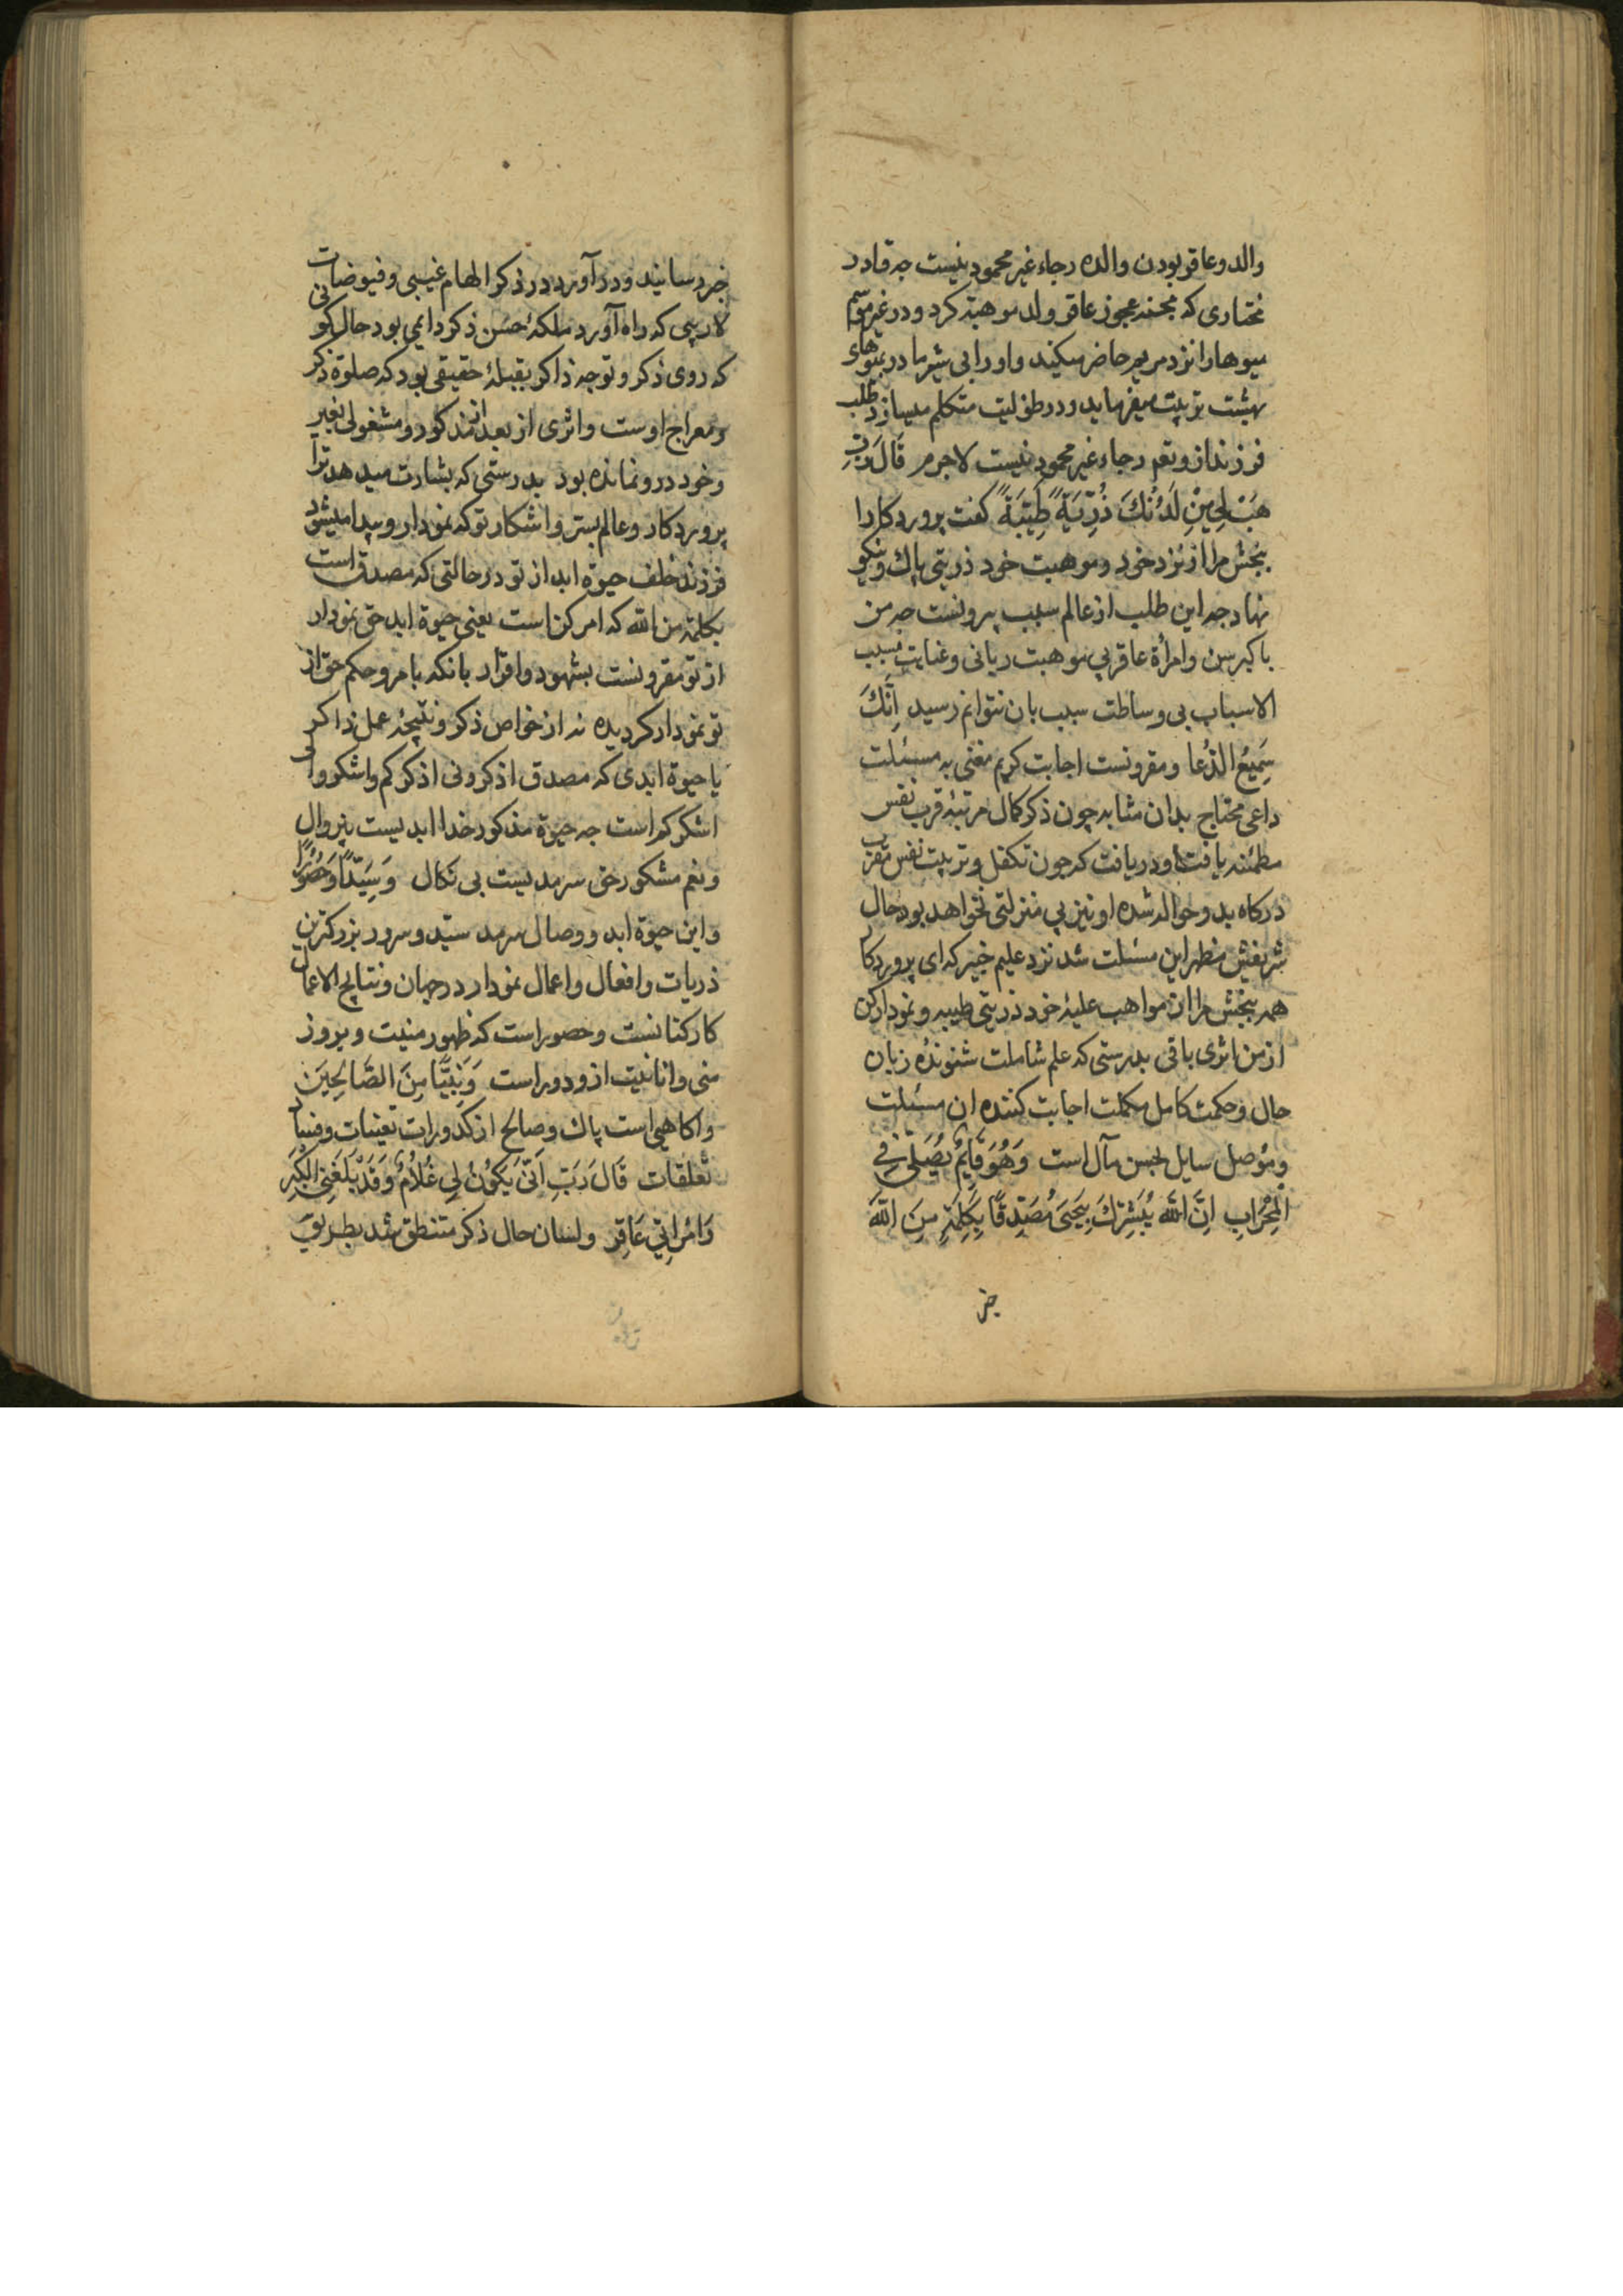 والد و عاقر بودن والده رجاء غیر محمود نیست چه قادر
مختاری که بحنه عجوز عاقر ولد موهبة کرد و در غیر موسم
میوها را نزد مریم حاضر میکند و او را بی شیر مادر بمیوهای
بهشت تربیت میفرماید و در طفولیت متکلم میسازد طلب
فرزند از و نعم رجاء غیر محمود نیست لاجرم قَالَ رَبِّ
هَبْ لِی مِنْ لَدُنْكَ ذُرِّیَةً طَیِّبَةً گفت پروردگارا
ببخش مرا از نزد خود و موهبت خود ذریتی پاك و نیکو
نهاد چه این طلب از عالم سبب بیرونست چه من
با کبر سن و امرأة عاقر بی موهبت ربانی و عنایت مسبب
الاسباب بی وساطت سبب بان نتوانم رسید اِنَّكَ
سَمِیعُ الدُّعا و مقرونست اجابت کریم مغنی به مسئلت
داعی محتاج بدان مثابه چون ذکر کمال مرتبه قرب نفس
مطمئنه یافت و دریافت که چون تکفل و تربیت نفس مقرب
درکاه بدو حواله شده او نیز بی منزلتی نخواهد بود حال
شریفش مظهر این مسئلت شد نزد علیم خبیر که ای پروردکا
همه ببخش مرا از مواهب علیهٔ خود ذریتی طیبه و نمودار کن
از من اثری باقی بدرستی که علم شاملت شنوندهٔ زبان
حال و حکمت کامل مکملت اجابت کننده ان مسئلت
و موصل سایل لحسن مآل است وَهُوَ قَایِمٌ یُصَلّی فِی
الْمِحْرَابِ اِنَّ اللّٰهَ یُبَشِّرُكَ بِیَحْیَی مُصَدِّقًا بِکَلِمَةٍ مِنَ اللّٰهِ
خبر
خبر رسانید و در آورد در ذکر الهام غیبی و فیوضات
لاریبی که راه آورد ملکهٔ حسن ذکر دایمی بود حال کو نی
که روی ذکر و توجه ذاکر بقبلهٔ حقیقی بود که صلوة ذکر
و معراج اوست و اثری از بعد از مذکور و مشغولی بغیر
و خود درو نمانده بود بدرستی که بشارت میدهد ترا
پروردکار و عالم بستر و اشکار تو که نمودار و پیدا میشود
فرزند خلف حیوة ابد از تو در حالتی که مصدق است
بکلمة من اللّٰه که امر کن است یعنی حیوة ابد حق نمودار
از تو مقرونست بشهود و اقرار بانکه بامر و حکم حق از
تو نمودار کردیده نه از خواص ذکر و نتیجهٔ عمل ذاکر
یا حیوة ابدی که مصدق اذکرونی اذکرکم و اشکروالی
اشکرکم است چه حیوة مذکور خدا ابدیست بیزوال
و نعم مشکور حق سرمدیست بی نکال وَسَیِّدًا وَحَصُورًا
و این حیوة ابد و وصال سرمد سیّد و سرور بزرکترین
ذریات و افعال و اعمال نمودار در جهان و نتایج الاعمال
کارکنانست و حصور است که ظهور منیت و بروز
منی و انانیت ازو دور است وَنَبِیًّا مِنَ الصَّالِحِینَ
و اکاهی است پاك و صالح از کدورات تعینات و فساد
تعلقات قَالَ رَبِّ اَنّٰی یَکُونُ لِی غُلَامٌ وَقَدْ بَلَغَنِیَ الْکِبَرُ
وَامْرَاَتِی عَاقِر و لسان حال ذکر متنطق شد بطریق